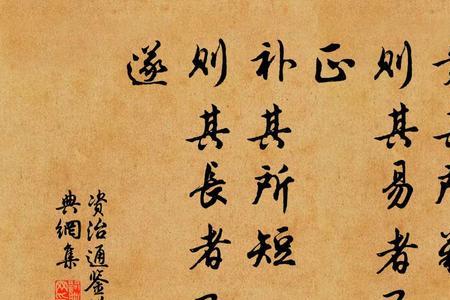 则其易者
正
补其所短
则其長者
遂
资治通鉴
典網集